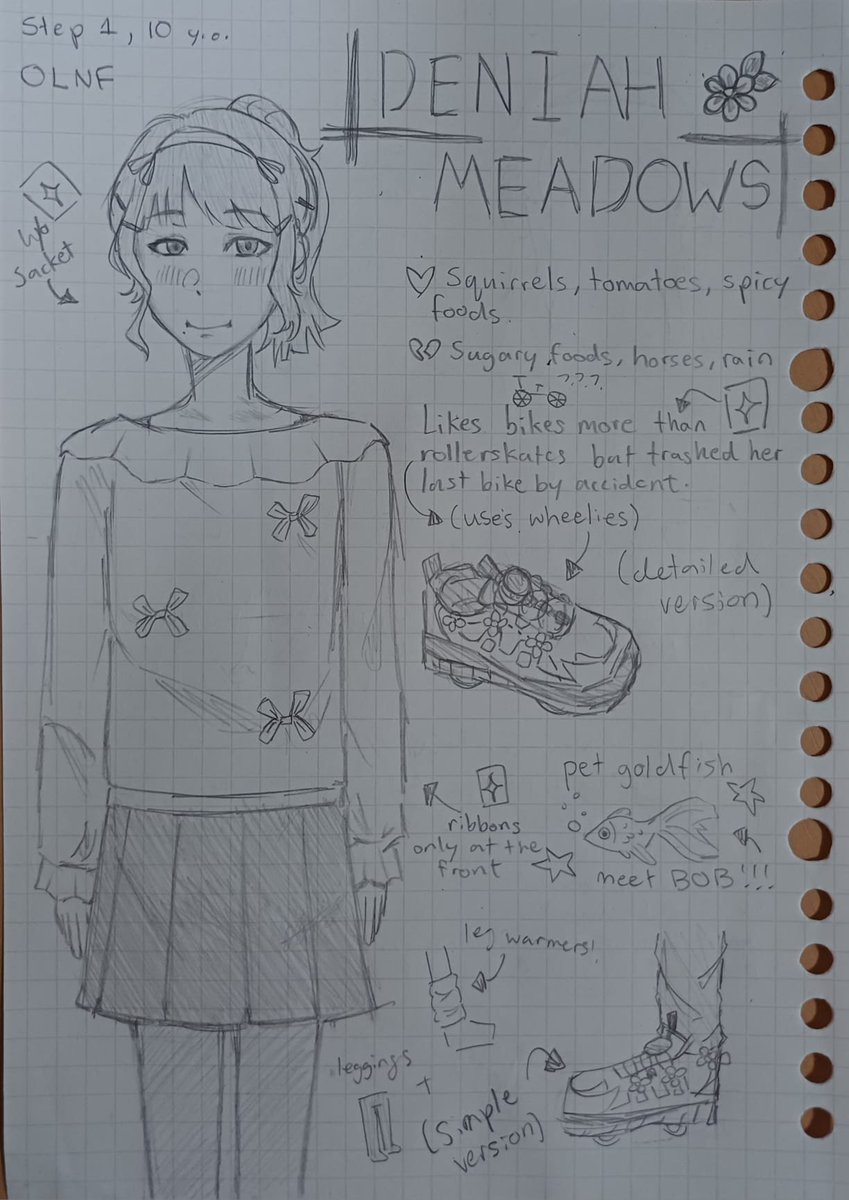 Step 1, 10 y.o.
OLNF
DENIAH
MEADOWS
w/o
Jacket
Squirrels, tomatoes, spicy
foods.
Sugary foods, horses, rain
???
Likes bikes more than
rollerskates but trashed her
last bike by accident.
(uses wheelies)
(detailed
version)
pet goldfish
ribbons
only at the
front
meet BOB!!!
leg warmers!
leggings
+
(Simple
version)